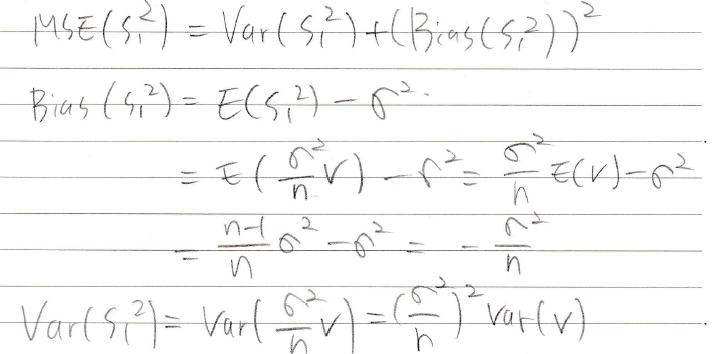 MSE(S₁²) = Var(S₁²) + (Bias(S₁²))²
Bias(S₁²) = E(S₁²) − σ².
= E(σ²/n V) − σ² = σ²/n E(V) − σ²
= n-1/n σ² − σ² = − σ²/n
Var(S₁²) = Var(σ²/n V) = (σ²/n)² Var(V)